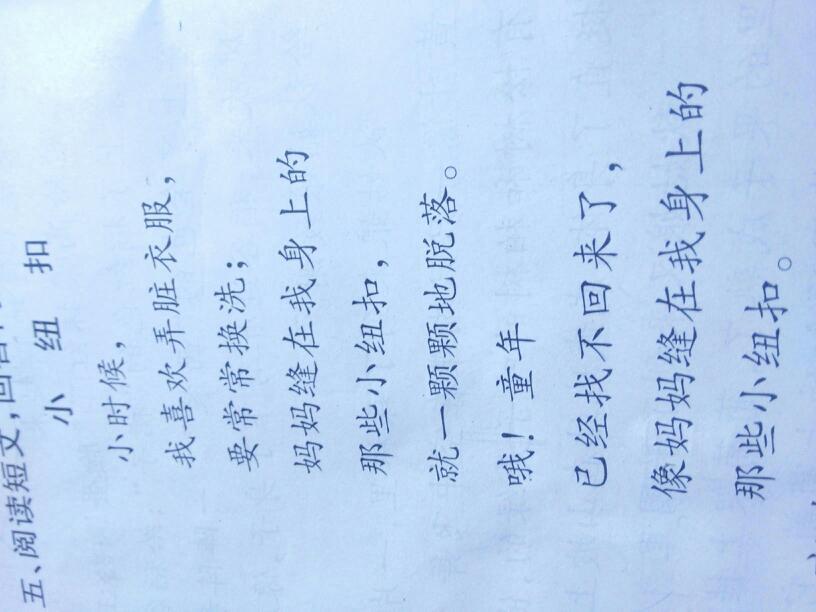 五、阅读短文,回答
小纽扣
小时候,
我喜欢弄脏衣服,
要常常换洗;
妈妈缝在我身上的
那些小纽扣,
就一颗颗地脱落。
哦!童年
已经找不回来了,
像妈妈缝在我身上的
那些小纽扣。